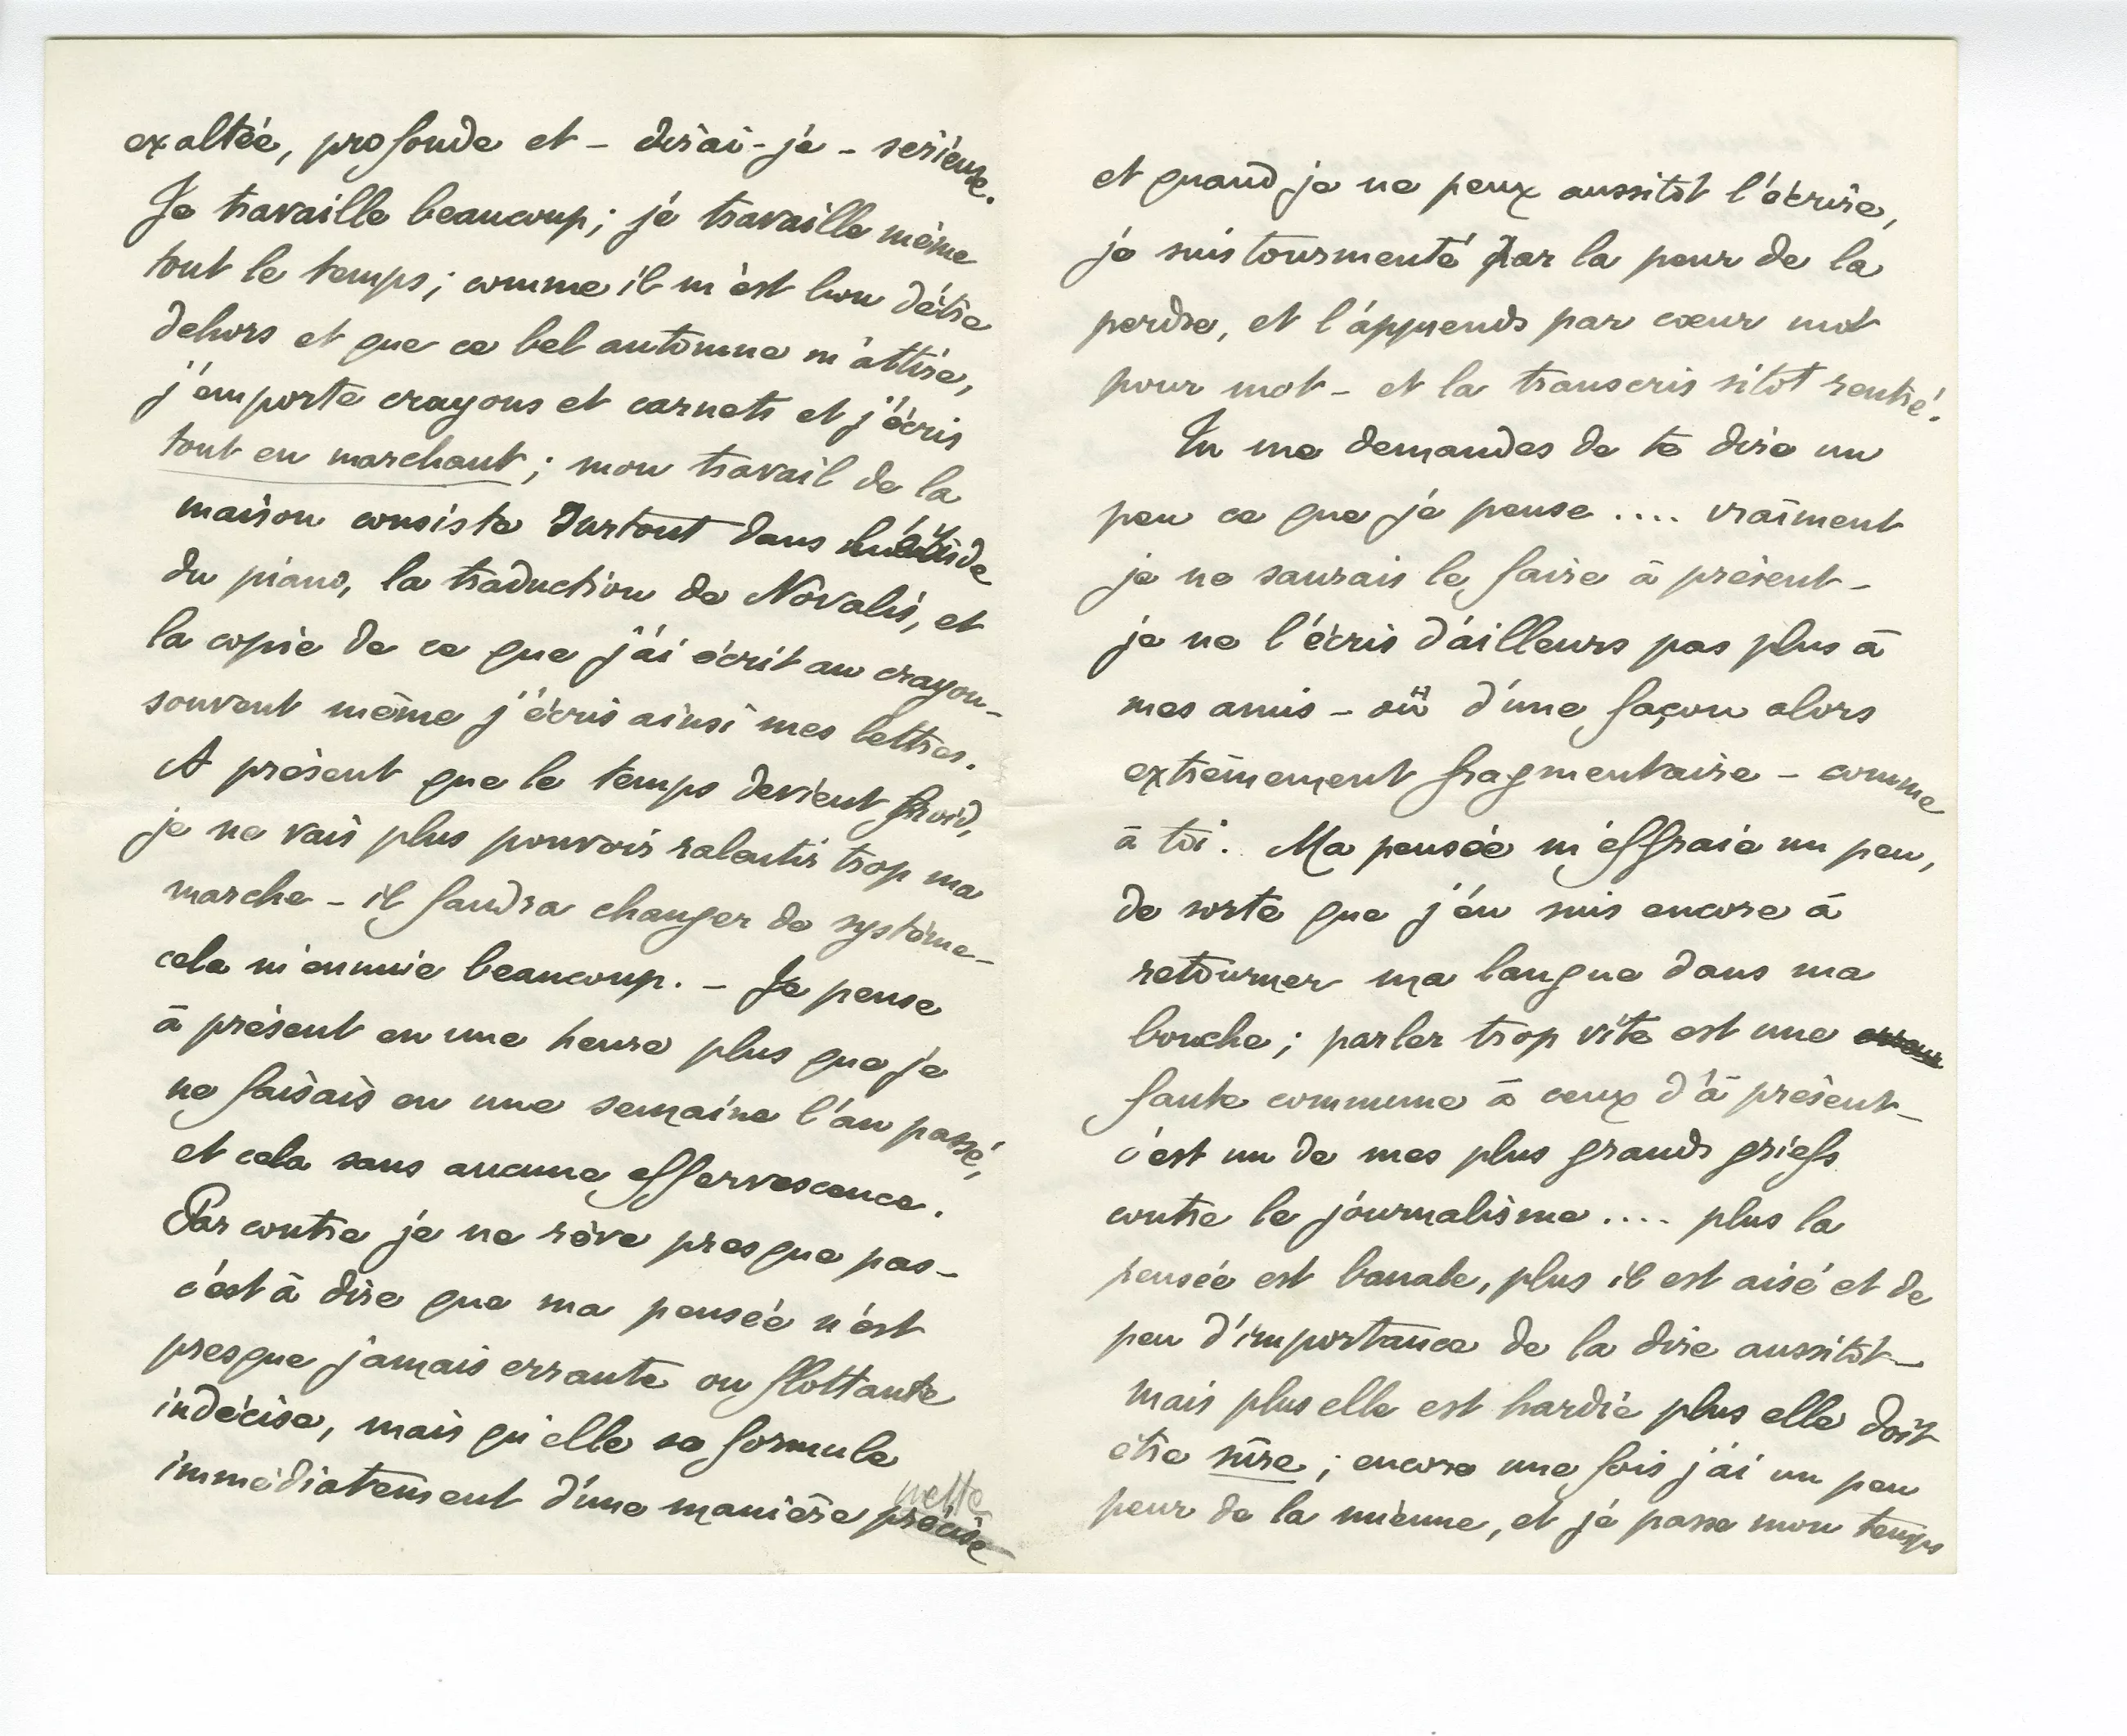 exaltée, profonde et – dirai-je – sérieuse.
Je travaille beaucoup ; je travaille même
tout le temps ; comme il m'est bon d'être
dehors et que ce bel automne m'attire,
j'emporte crayons et carnets et j'écris
tout en marchant ; mon travail de la
maison consiste surtout dans l'étude
du piano, la traduction de Novalis, et
la copie de ce que j'ai écrit au crayon –
souvent même j'écris ainsi mes lettres.
A présent que le temps devient froid,
je ne vais plus pouvoir ralentir trop ma
marche – il faudra changer de système –
cela m'ennuie beaucoup. – Je pense
à présent en une heure plus que je
ne faisais en une semaine l'an passé,
et cela sans aucune effervescence.
Par contre je ne rêve presque pas –
c'est à dire que ma pensée n'est
presque jamais errante ou flottante
indécise, mais qu'elle se formule
immédiatement d'une manière précise
nette
et quand je ne peux aussitôt l'écrire,
je suis tourmenté par la peur de la
perdre, et l'apprends par cœur mot
pour mot – et la transcris sitôt rentré.
Tu me demandes de te dire un
peu ce que je pense .... vraiment
je ne saurais le faire à présent –
je ne l'écris d'ailleurs pas plus à
mes amis – ou d'une façon alors
extrêmement fragmentaire – comme
à toi. Ma pensée m'effraie un peu,
de sorte que j'en suis encore à
retourner ma langue dans ma
bouche ; parler trop vite est une erreur
faute commune à ceux d'à présent –
c'est un de mes plus grands griefs
contre le journalisme .... plus la
pensée est banale, plus il est aisé et de
peu d'importance de la dire aussitôt –
mais plus elle est hardie plus elle doit
être sûre ; encore une fois j'ai un peu
peur de la mienne, et je passe mon temps